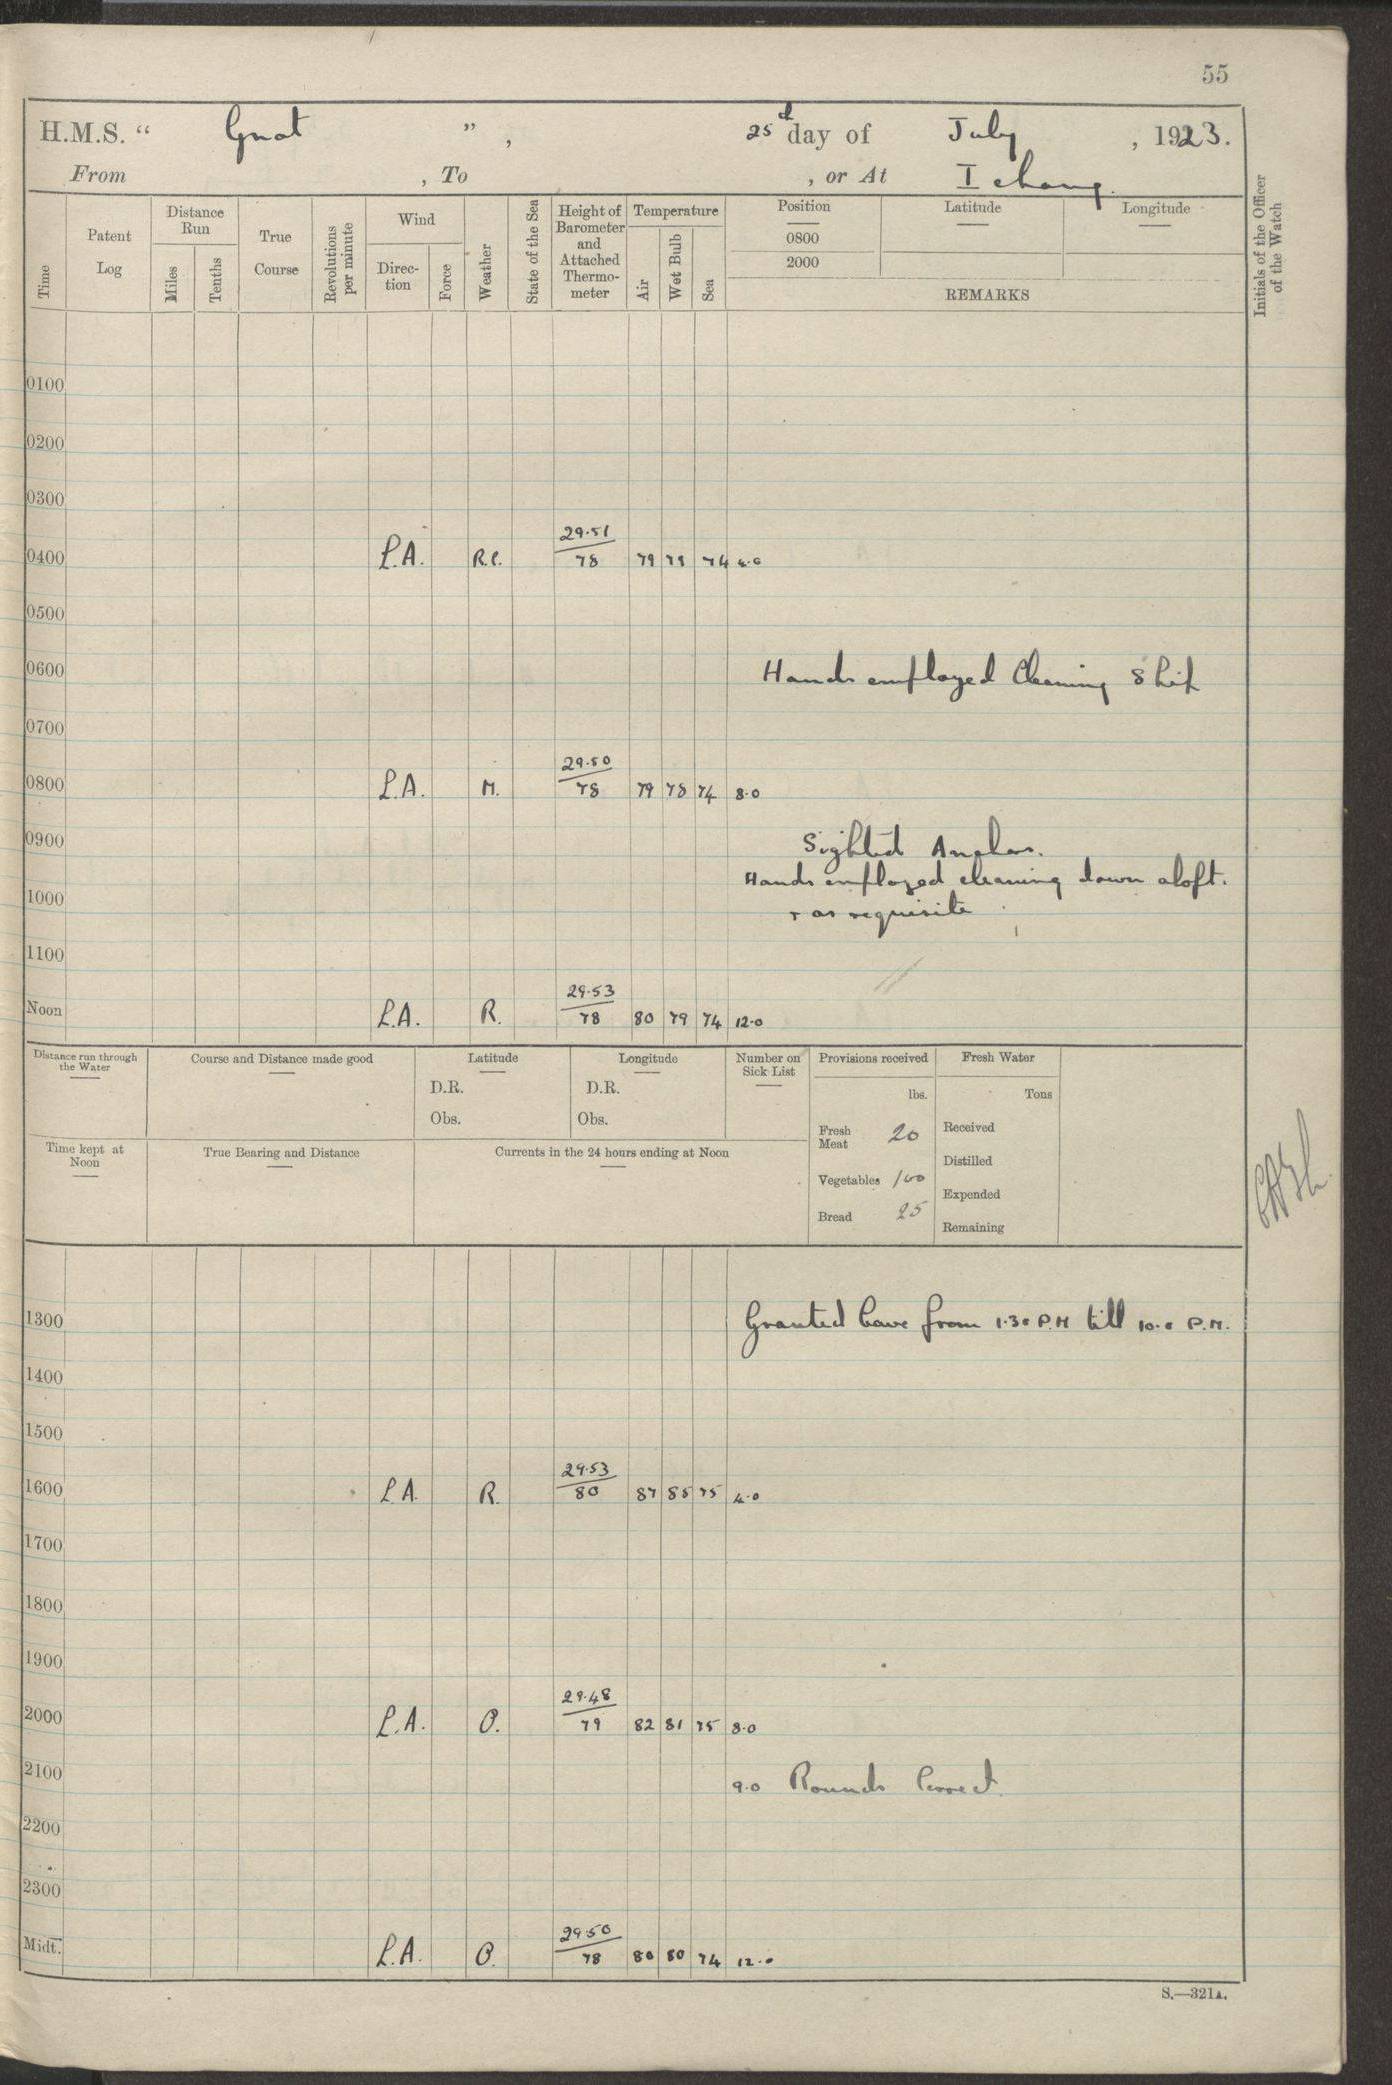 55
H.M.S. “ Gnat ” , 25th day of July , 1923.
From , To , or At Ichang.
Time
Patent Log
Distance Run
Miles
Tenths
True Course
Revolutions per minute
Wind
Direc-tion
Force
Weather
State of the Sea
Height of Barometer and Attached Thermo-meter
Temperature
Air
Wet Bulb
Sea
Position
0800
2000
Latitude
Longitude
REMARKS
Initials of the Officer of the Watch
0100
0200
0300
29.51
0400 L.A. R.C. 78 79 78 74 4.0
0500
0600 Hands employed Cleaning Ship
0700
29.50
0800 L.A. M. 78 79 78 74 8.0
0900 Sighted Anchor.
Hands employed cleaning down aloft.
1000
+ as requisite
1100
29.53
Noon L.A. R. 78 80 79 74 12.0
Distance run through the Water
Course and Distance made good
Latitude
D.R.
Obs.
Longitude
D.R.
Obs.
Number on Sick List
Provisions received
lbs.
Fresh Meat 20
Vegetables 100
Bread 25
Fresh Water
Tons
Received
Distilled
Expended
Remaining
Time kept at Noon
True Bearing and Distance
Currents in the 24 hours ending at Noon
1300 Granted leave from 1.30 P.M till 10.0 P.M.
1400
1500
29.53
1600 L.A. R. 80 87 85 75 4.0
1700
1800
1900
29.48
2000 L.A. O. 79 82 81 75 8.0
2100 9.0 Rounds Correct.
2200
2300
29.50
Midt. L.A. O. 78 80 80 74 12.0
S.—321A.